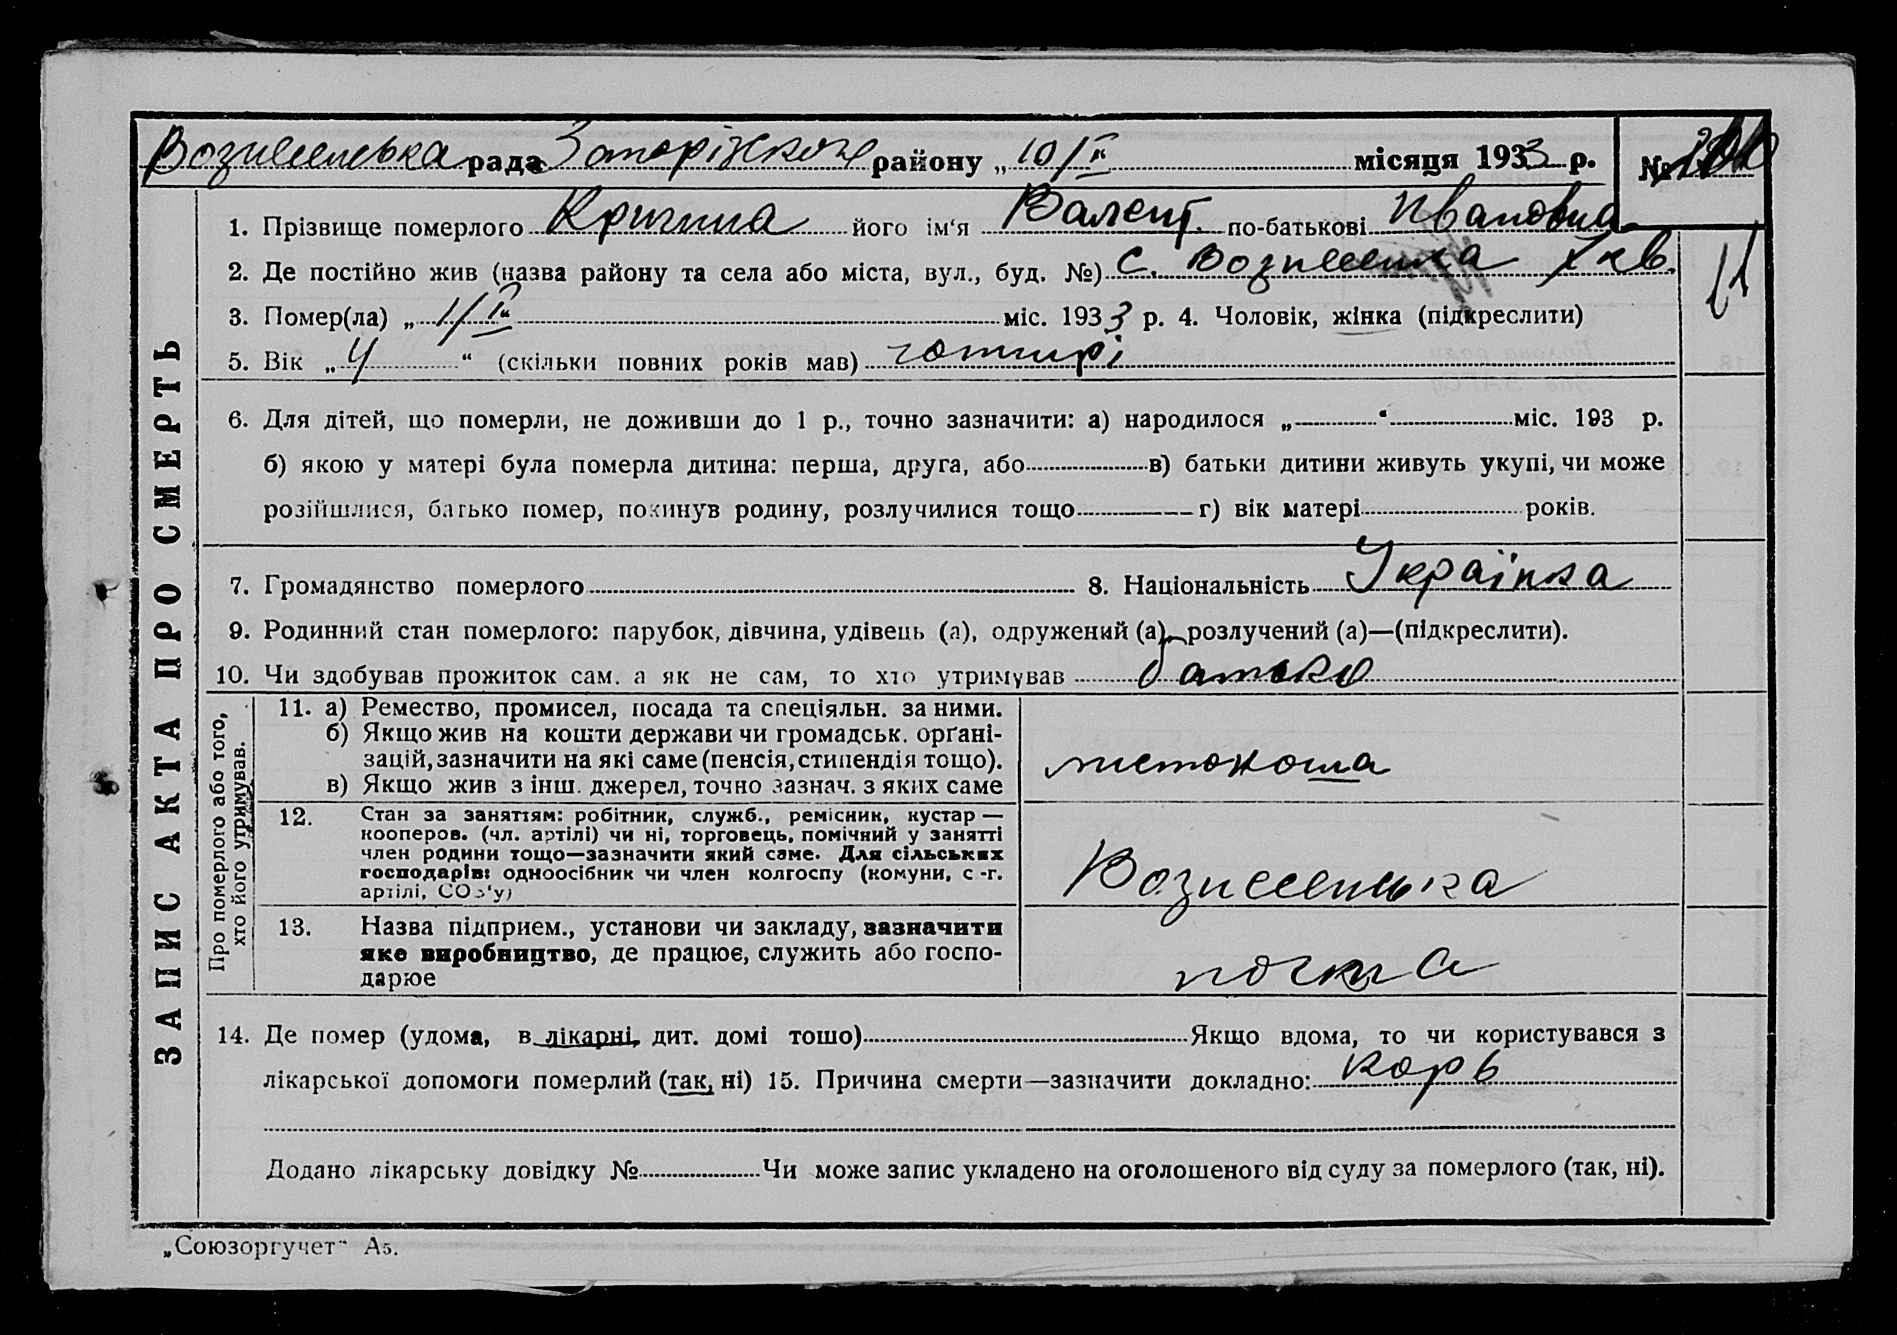 Вознесенська рада Запорізького району „10/V" місяця 1933 р. №
1. Прізвище померлого його ім'я Валент. по-батькові Ивановна
2. Де постійно жив (назва району та села або міста, вул., буд. №) с. Вознесенка
3. Помер(ла) „ 1/V" міс. 1933 р. 4. Чоловік, жінка (підкреслити)
5. Вік „4" (скільки повних років мав) чотирі
6. Для дітей, що померли, не доживши до 1 р., точно зазначити: а) народилося „ " міс. 193 р.
б) якою у матері була померла дитина: перша, друга, або в) батьки дитини живуть укупі, чи може
розійшлися, батько помер, покинув родину, розлучилися тощо г) вік матері років.
7. Громадянство померлого 8. Національність Українка
9. Родинний стан померлого: парубок, дівчина, удівець (а), одружений (а), розлучений (а)—(підкреслити).
10. Чи здобував прожиток сам, а як не сам, то хто утримував батько
ЗАПИС АКТА ПРО СМЕРТЬ
Про померлого або того,
хто його утримував.
11. а) Ремество, промисел, посада та спеціяльн. за ними.
б) Якщо жив на кошти держави чи громадськ. орґані-
зацій, зазначити на які саме (пенсія, стипендія тощо).
в) Якщо жив з інш. джерел, точно зазнач. з яких саме
листоноша
12. Стан за заняттям: робітник, служб., ремісник, кустар—
кооперов. (чл. артілі) чи ні, торговець, помічний у занятті
член родини тощо—зазначити який саме. Для сільських
господарів: одноосібник чи член колгоспу (комуни, с.-г.
артілі, СОЗ'у)
Вознесенська
13. Назва підприєм., установи чи закладу, зазначити
яке виробництво, де працює, служить або госпо-
дарює
почта
14. Де помер (удома, в лікарні, дит. домі тошо) Якщо вдома, то чи користувався з
лікарської допомоги померлий (так, ні) 15. Причина смерти—зазначити докладно: корь
Додано лікарську довідку № Чи може запис укладено на оголошеного від суду за померлого (так, ні).
„Союзоргучет" А5.